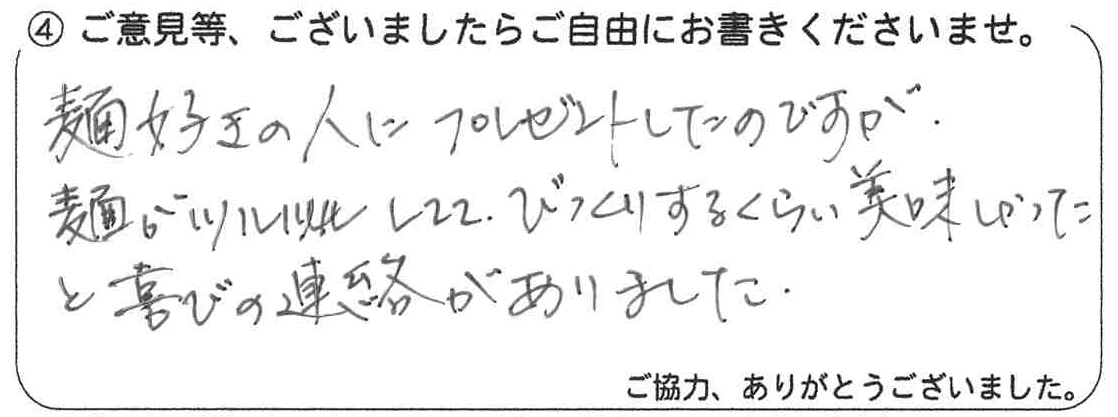 ④ご意見等、ございましたらご自由にお書きくださいませ。
麺好きの人にプレゼントしたのですが、
麺がツルツルしてて、びっくりするくらい美味しかった
と喜びの連絡がありました.
ご協力、ありがとうございました。